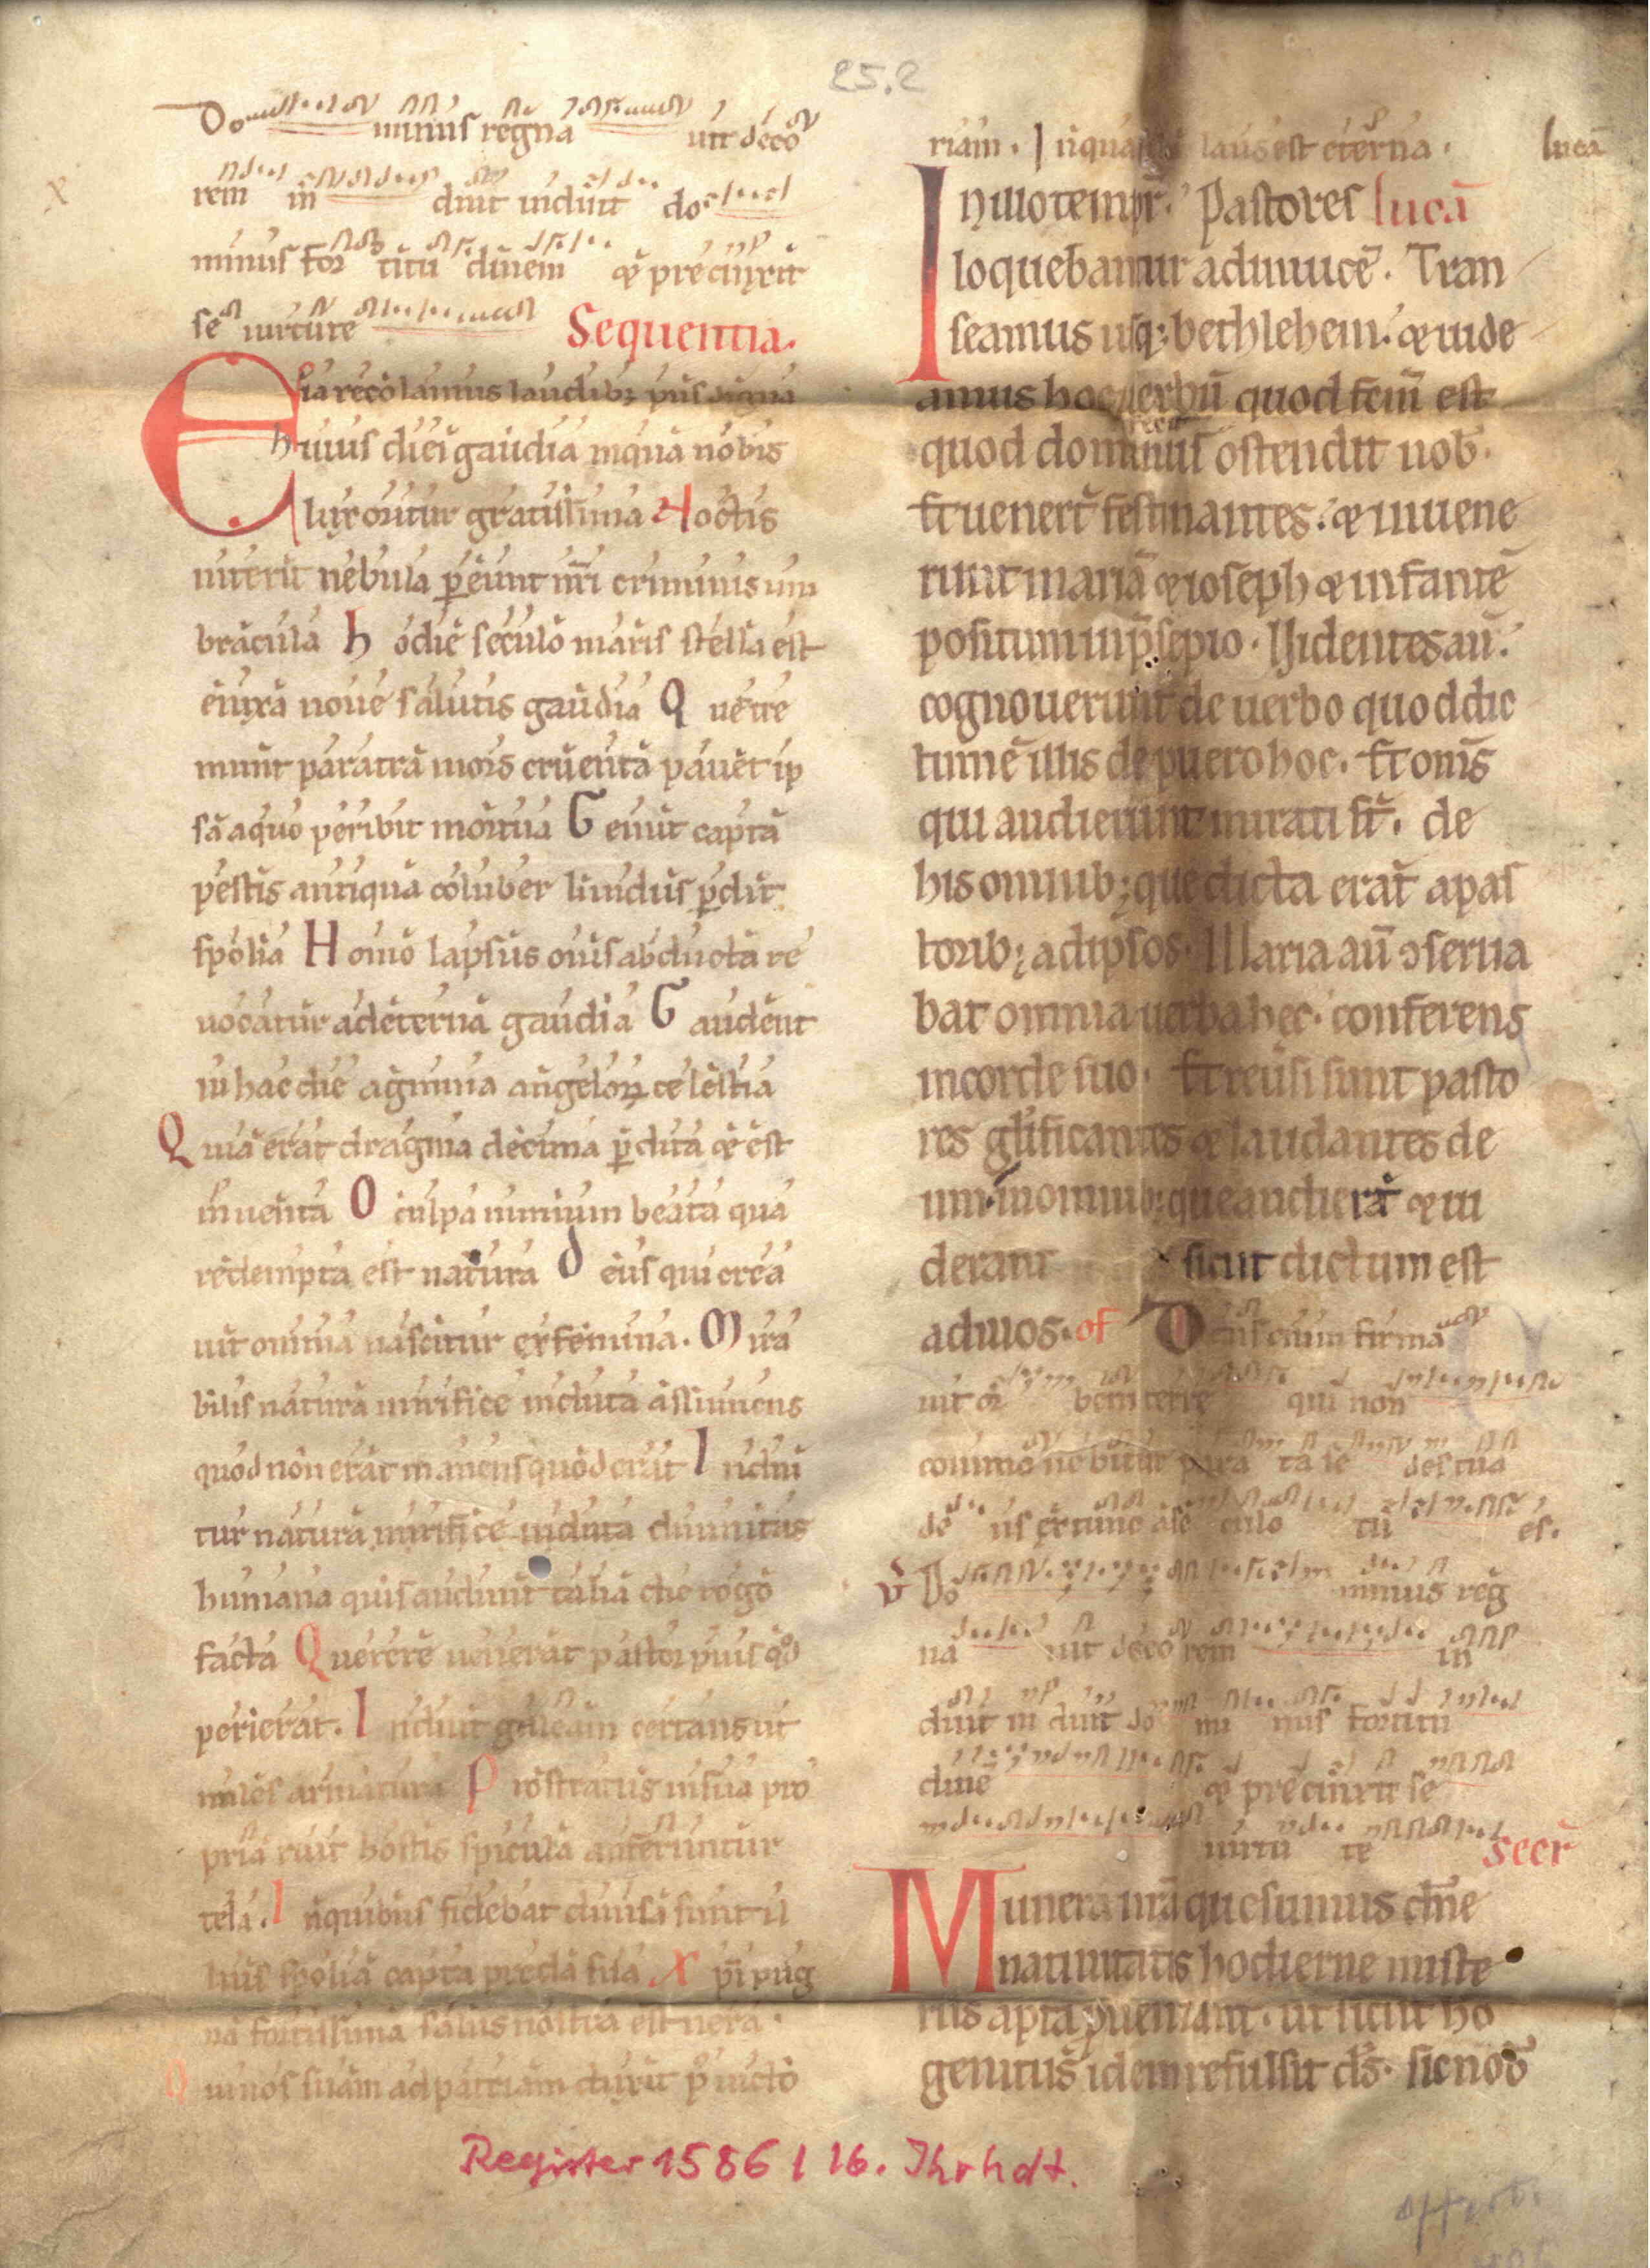 25.2
Do minus regna uit deco
rem in duit induit do
minus for titu dinem & precinxit
se uirtute Sequentia.
Eia recolamus laudib; piis digna
huius diei gaudia in qua nobis
lux oritur gratissima Noctis
interit nebula pereunt nr̄i criminis um
bracula hodie seculo maris stella est
enixa noue salutis gaudia Quē tre
munt paratra mors cruenta pauet ip
sa a quo peribit mortua Gemit capta
pestis antiqua coluber liuidus p̄dit
spolia Homo lapsus ouis abducta re
uocatur ad eterna gaudia Gaudent
in hac die agmina angeloꝝ celestia
Quia erat dragma decima p̄dita & est
inuenta O culpa nimium beata qua
redempta est natura deus qui crea
uit omnia nascitur ex femina. Mira
bilis natura mirifice induta assumens
quod non erat manens quod erat Indui
tur natura mirifice induta diuinitas
humana quis audiuit talia dic rogo
facta Querere uenerat pastor pius qd̄
perierat. Induit galeam certans ut
miles armatura Prostratus in sua pro
pria ruit hostis spicula auferuntur
tela. In quibus fidebat diuisa sunt il
lius spolia capta preda sua Xp̄i pug
na fortissima salus nostra est uera.
Qui nos suam ad patriam duxit p̄ uicto
riam. In qua laus est eterna. lucā
In illo tempr̄. Pastores lucā
loquebantur adinuicē. Tran
seamus usq; bethlehem. & uide
amus hoc uerbū quod fc̄m est
fecit
quod dominus ostendit nob.
Et uenert̄ festinantes. & inuene
runt mariā & ioseph & infantē
positum in p̄sepio. Uidentes aū.
cognouerunt de uerbo quod dic
tum ē illis de puero hoc. Et om̄s
qui audierunt mirati st̄. de
his omnib; que dicta erāt a pas
torib; ad ipsos. Maria aū ɔserua
bat omnia uerba hec. conferens
in corde suo. Et reūsi sunt pasto
res gl̄ificantes & laudantes de
um in omnib; que audierāt & ui
derant sicut dictum est
ad illos. of Deus enim firma
uit or bem terre qui non
commo ue bitur para ta se des tua
de us ex tunc a se culo tu es.
v̄ Do minus reg
na uit deco rem in
duit in duit do mi nus fortitu
dinē & precinxit se
uirtu te Secr̄
Munera nr̄a quesumus dn̄e
natiuitatis hodierne miste
riis apta p̄ueniant. ut sicut ho
genitus idem refulsit ds̄. sic nob̄
Register 1586 / 16. Jhrhdt.
offert.